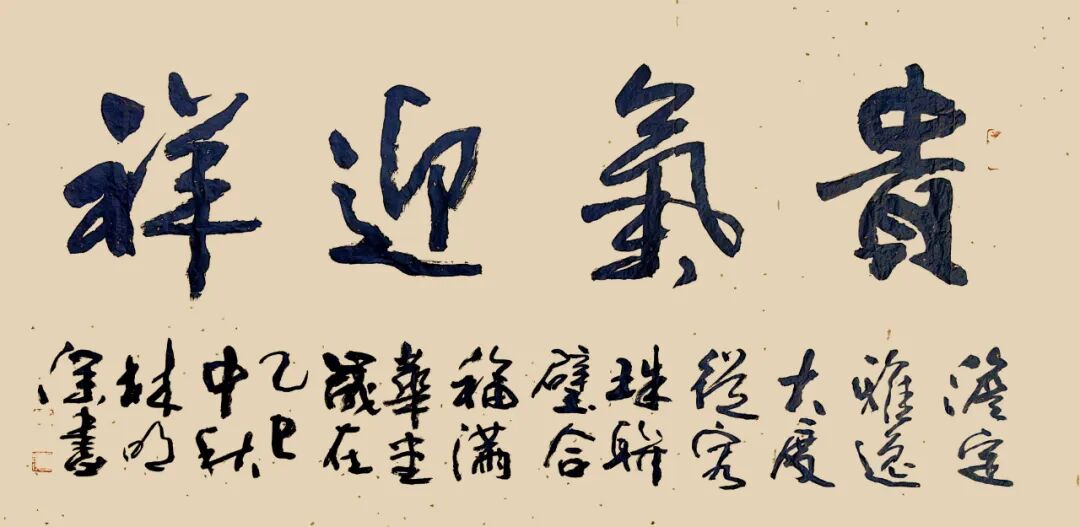 貴氣迎祥
澹定
雅逸
大度
從容
珠聯
璧合
福滿
華堂
歲在
乙巳
中秋
林明
深書